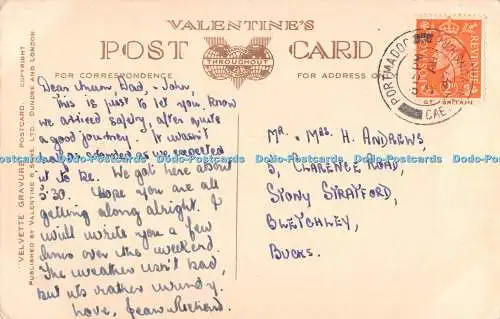 VALENTINE'S
POST CARD
THROUGHOUT
FOR CORRESPONDENCE
FOR ADDRESS ON
"VELVETTE GRAVURE" POSTCARD. COPYRIGHT
PUBLISHED BY VALENTINE & SONS, LTD., DUNDEE AND LONDON
Dear Mum, Dad, & John,
This is just to let you know
we arrived safely, after quite
a good journey. It wasn't
as we expected
it to be. We got here about
5.30. Hope you are all
getting along alright. I
will write you a few
lines over the weekend.
The weather isn't bad,
but its rather windy.
Love, Jean & Richard.
MR. & MRS. H. ANDREWS,
5, CLARENCE ROAD,
STONY STRATFORD,
BLETCHLEY,
BUCKS.
PORTMADOC
CAE
REVENUE
GT BRITAIN
Old-Postcards